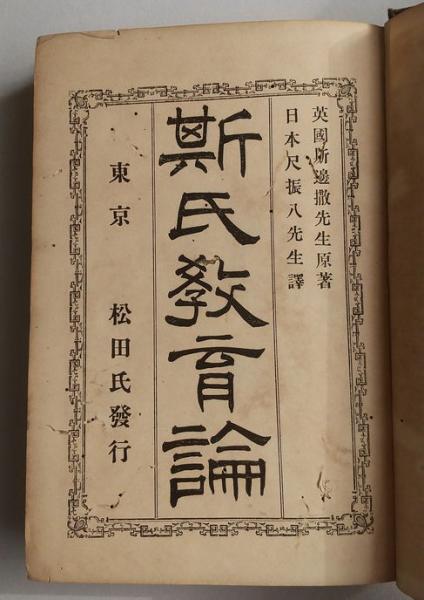 英國斯邊撒先生原著
日本尺振八先生譯
斯氏教育論
東京 松田氏發行